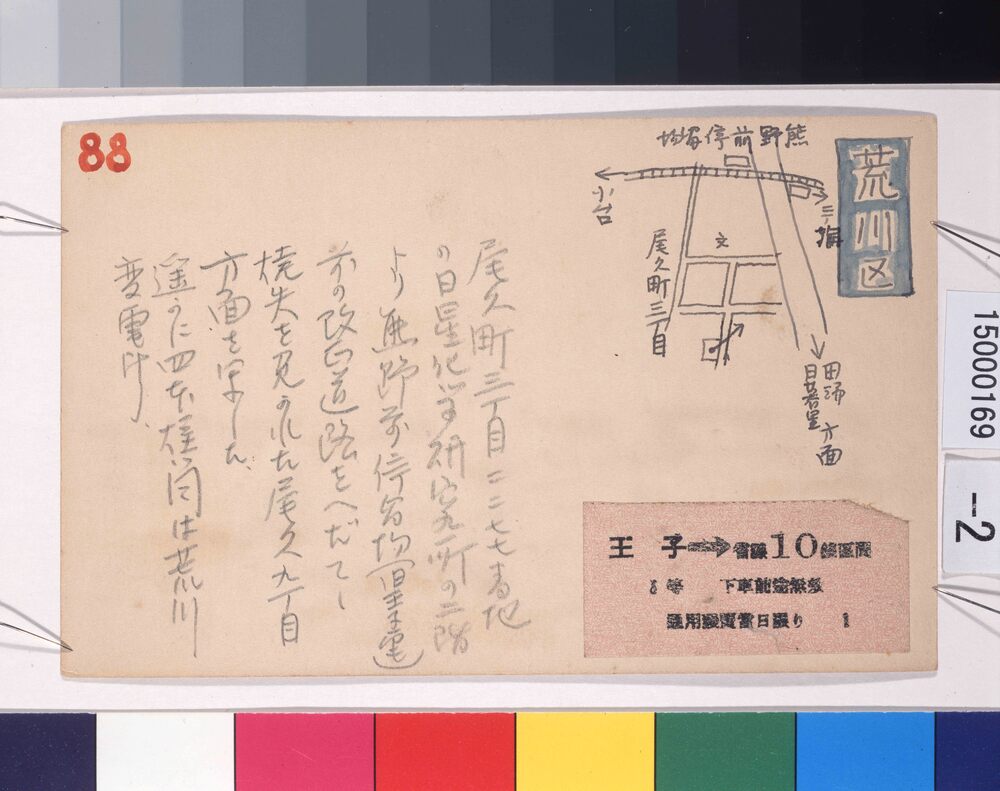 88
荒川区
熊野前停留場
小台
三ノ輪
尾久町三丁目
文
田端
日暮里
方面
尾久町三丁目二二七七番地
の日星化学研究所の二階
より熊野前停留場
前の改正道路をへだてゝ
焼失を免かれた尾久九丁目
方面を写した、
遥かに四本煙筒は荒川
変電所、
王子 省線10銭区間
3等 下車前途無効
通用発売当日限り 1
15000169
-2